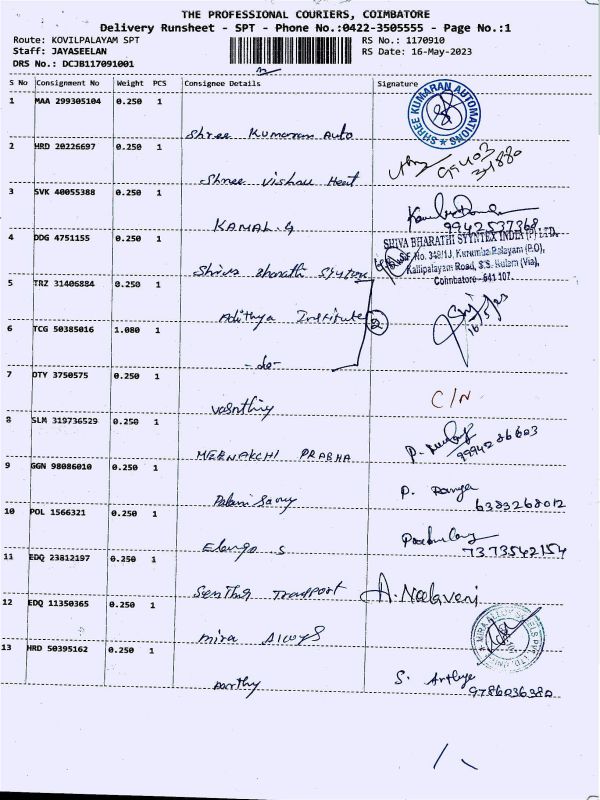 THE PROFESSIONAL COURIERS, COIMBATORE
Delivery Runsheet - SPT - Phone No.:0422-3505555 - Page No.:1
Route: KOVILPALAYAM SPT RS No.: 1170910
Staff: JAYASEELAN RS Date: 16-May-2023
DRS No.: DCJB117091001
S No Consignment No Weight PCS Consignee Details Signature
1 MAA 299305104 0.250 1 Shree Kumaran Auto
SHREE KUMARAN AUTOMATIONS
2 HRD 20226697 0.250 1 Shree Vishnu Heat
3 SVK 40055388 0.250 1 KAMAL.G
9942537368
4 DDG 4751155 0.250 1 Shiva Bharathi Syntex
SHIVA BHARATHI SYNTEX INDIA (P) LTD.
S.F No. 348/1J, Kurumba Palayam (P.O),
Kalipalayam Road, S.S. Kulam (Via),
Coimbatore - 641 107.
5 TRZ 31406884 0.250 1 Adithya Institute
2
16/5/23
6 TCG 50385016 1.080 1 -do-
7 DTY 3750575 0.250 1 Vasnthiy
C/N
8 SLM 319736529 0.250 1 MEENAKCHI PRABHA
9994286603
9 GGN 98086010 0.250 1 Palani Samy
P. Ranga
6383268012
10 POL 1566321 0.250 1 Elango S
7373542154
11 EDQ 23812197 0.250 1 Senthil Transport
A. Neelaveni
12 EDQ 11350365 0.250 1 Mira Alloys
13 HRD 50395162 0.250 1 Parthy
9786036380